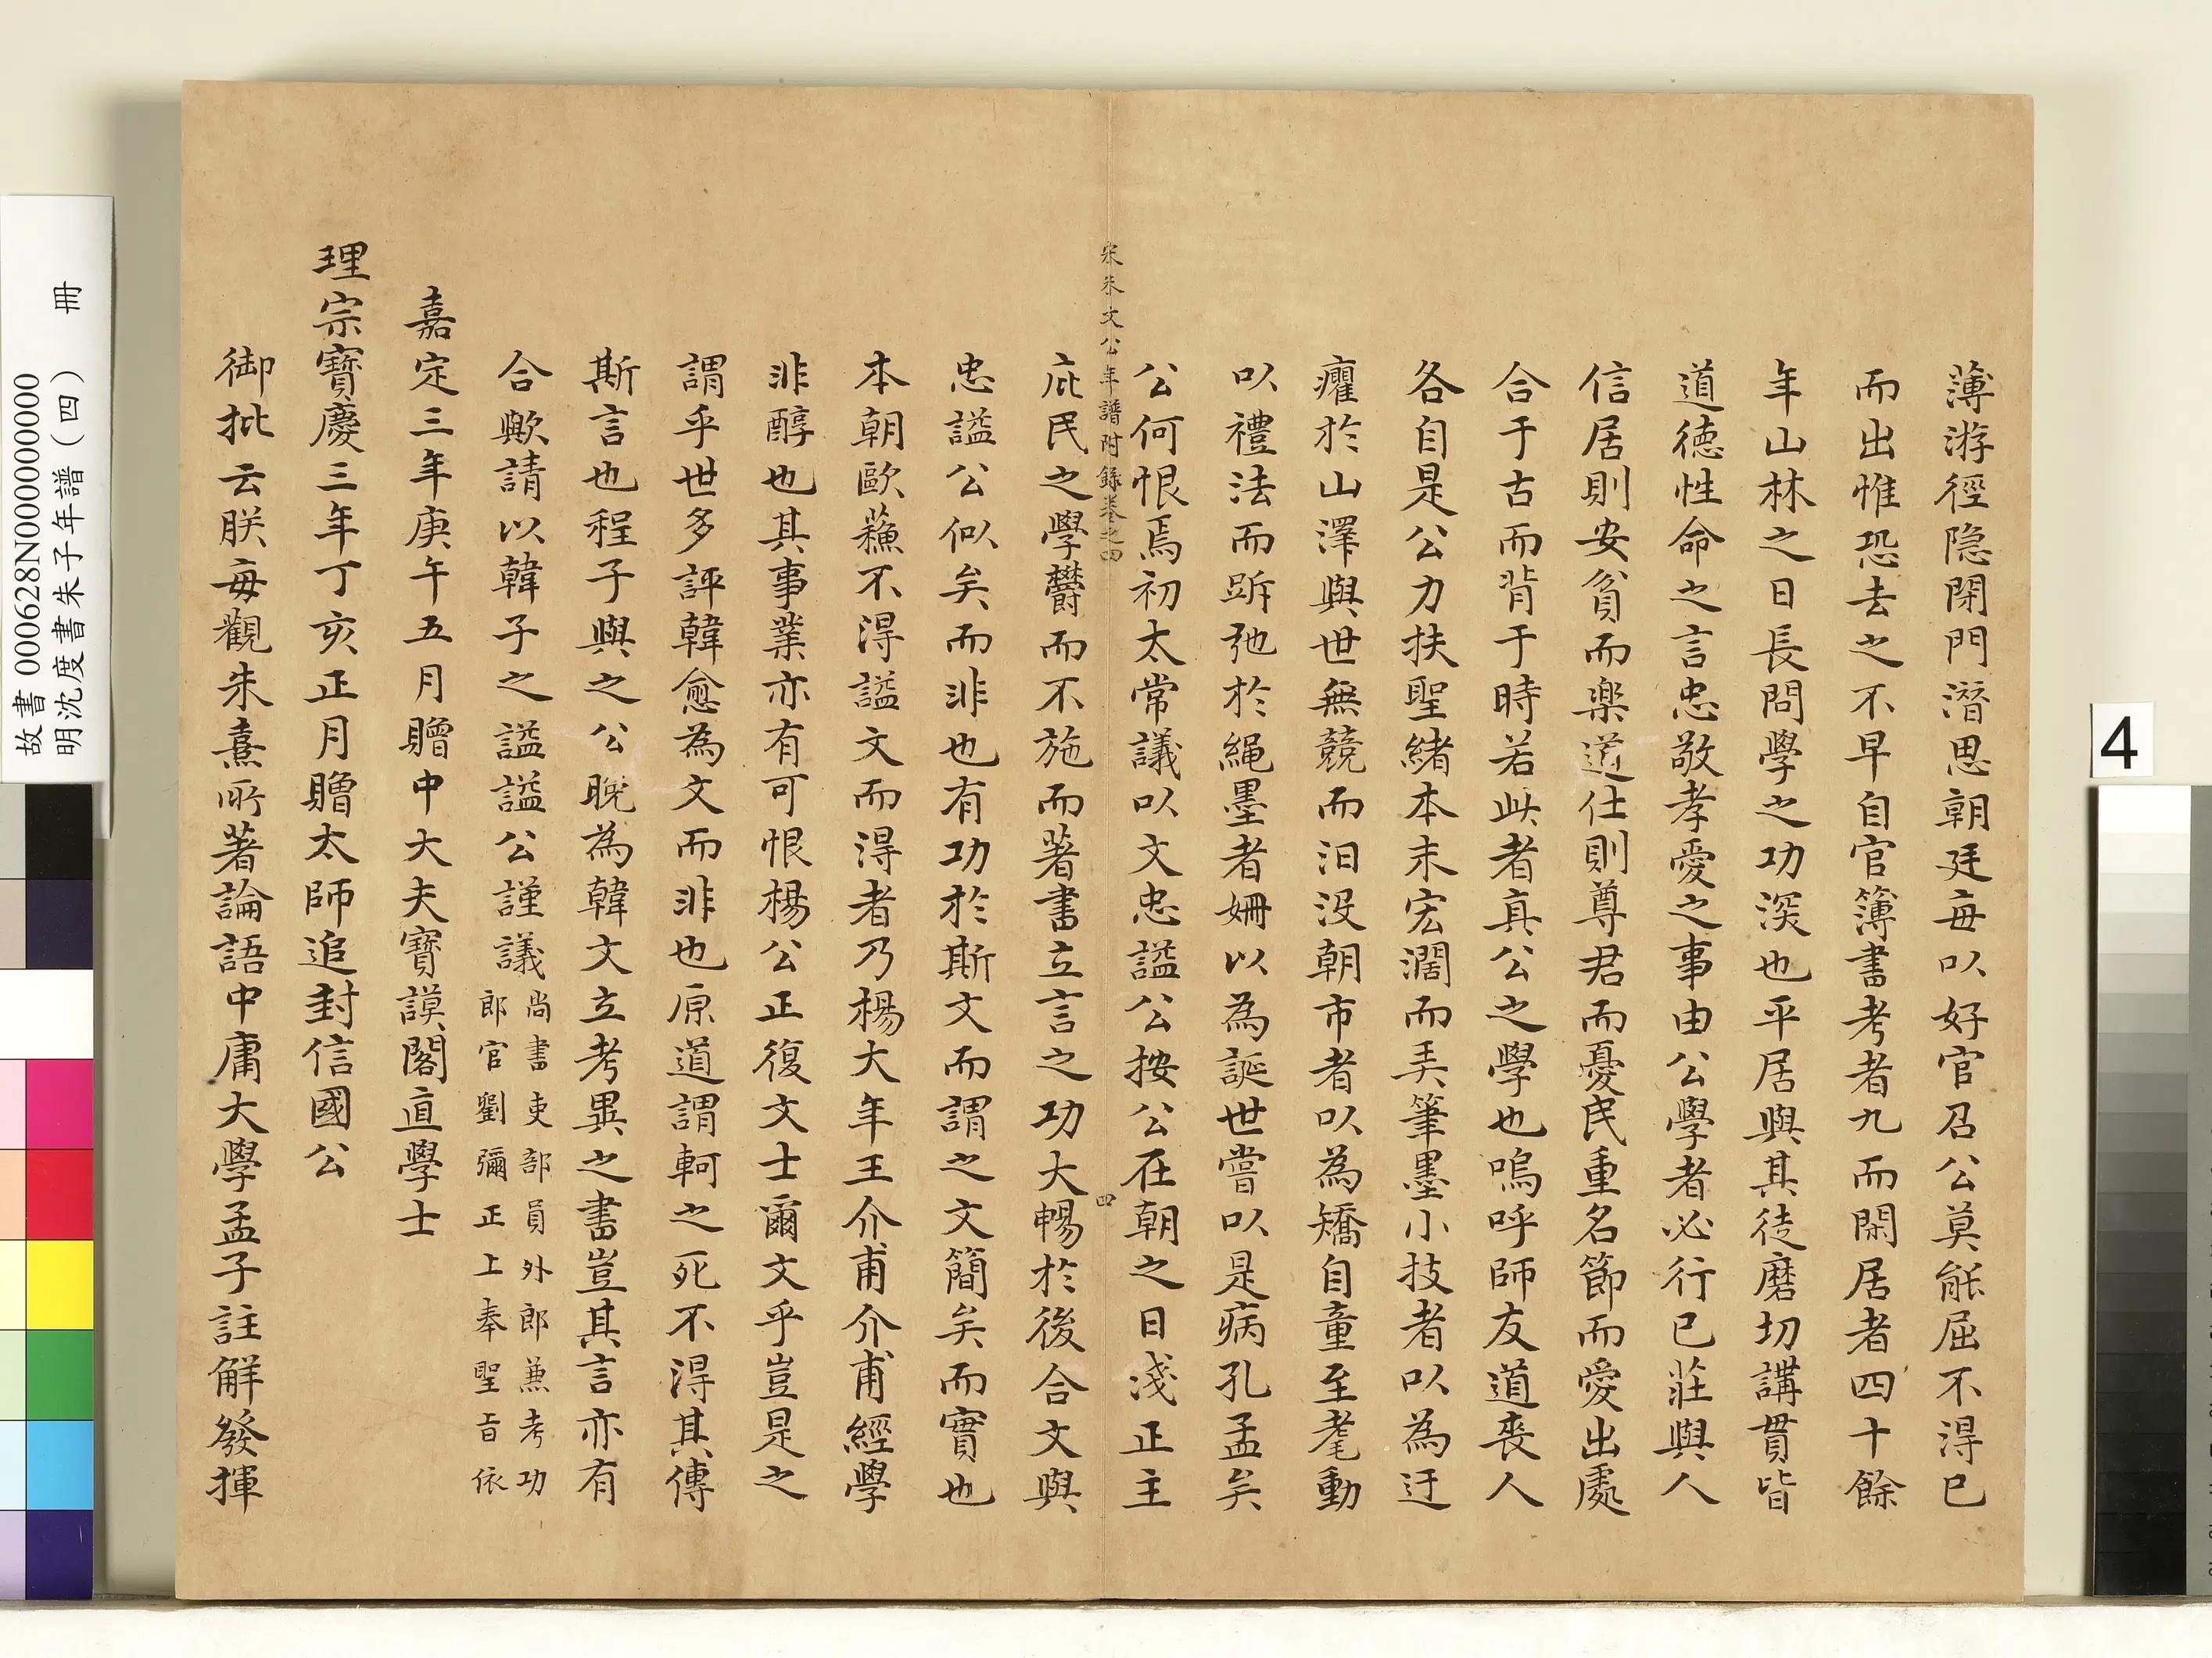 薄游徑隐閑門潛思朝廷毎以好官召公莫能屈不得已
而出惟恐去之不早自官簿書考者九而閑居者四十餘
年山林之日長問學之功深也平居與其徒磨切講貫皆
道徳性命之言忠敬孝愛之事由公學者必行已莊與人
信居則安貧而樂道仕則尊君而憂民重名節而愛出處
合于古而背于時若此者真公之學也嗚呼師友道喪人
各自是公力扶聖緒本末宏濶而弄筆墨小技者以為迂
癯於山澤與世無競而汨没朝市者以為矯自童至耄動
以禮法而跅弛於繩墨者姍以為誕世嘗以是病孔孟矣
公何恨焉初太常議以文忠謚公按公在朝之日淺正主
宋朱文公年譜附錄卷之四
四
庇民之學欝而不施而著書立言之功大暢於後合文與
忠謚公似矣而非也有功於斯文而謂之文簡矣而實也
本朝歐蘓不得謚文而得者乃楊大年王介甫介甫經學
非醇也其事業亦有可恨楊公正復文士爾文乎豈是之
謂乎世多評韓愈為文而非也原道謂軻之死不得其傳
斯言也程子與之公晚為韓文立考異之書豈其言亦有
合歟請以韓子之謚謚公謹議
尚書吏部員外郎兼考功
郎官劉彌正上奉聖旨依
嘉定三年庚午五月贈中大夫寶謨閣直學士
理宗寶慶三年丁亥正月贈太師追封信國公
御批云朕毎觀朱熹所著論語中庸大學孟子註解發揮
故書000628N000000000
明沈度書朱子年譜(四) 冊
4